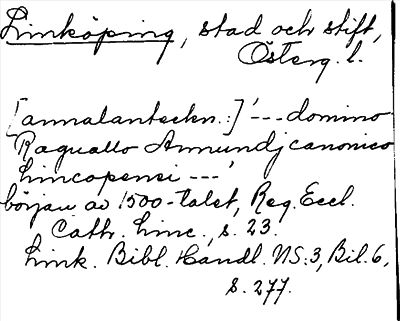 Linköping, stad och stift,
Österg. l.
[annalanteckn.:] '--- domino
Raguallo Amundj canonico
lincopensi ---'
början av 1500-talet, Reg. Eccl.
Cath. Linc., s. 23.
Link. Bibl. Handl. NS:3, Bil. 6,
s. 277.